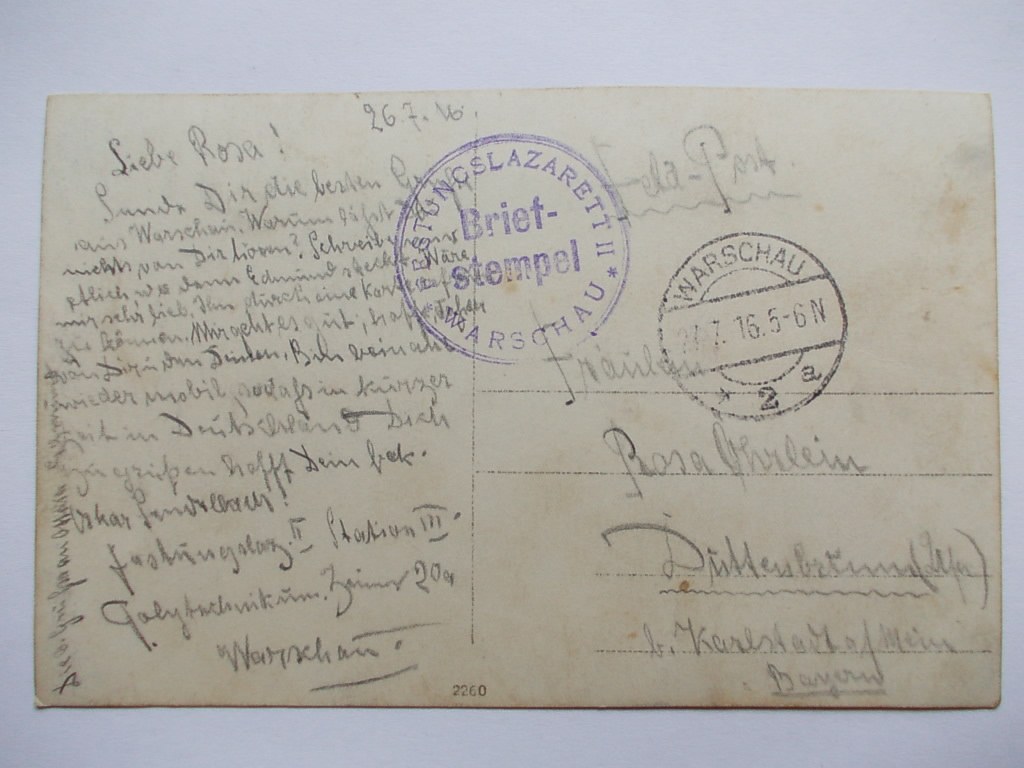 26.7.16.
Liebe Rosa!
Sende Dir die besten Grüße
aus Warschau. Warum läßt Du
nichts von Dir hören? Schreibe
wo denn Edmund steckt. Wäre
mir sehr lieb, Ihm durch eine Karte
zu können. Mir geht es gut, hoffe
von Dir u. den Deinen. Bin beinahe
wieder mobil, sodaß in kurzer
Zeit in Deutschland Dich
zu grüßen hofft Dein bek.
Oskar
Festungslaz. II Station III.
Polytechnikum. Zimmer 20a
Warschau.
FESTUNGSLAZARETT II
Brief-
stempel
* WARSCHAU *
Feld-Post.
WARSCHAU
27.7.16.5-6N
* 2 a
Fräulein
Rosa Öhrlein
Duttenbrunn (Ufr)
b. Karlstadt a/Mein
Bayern
2260